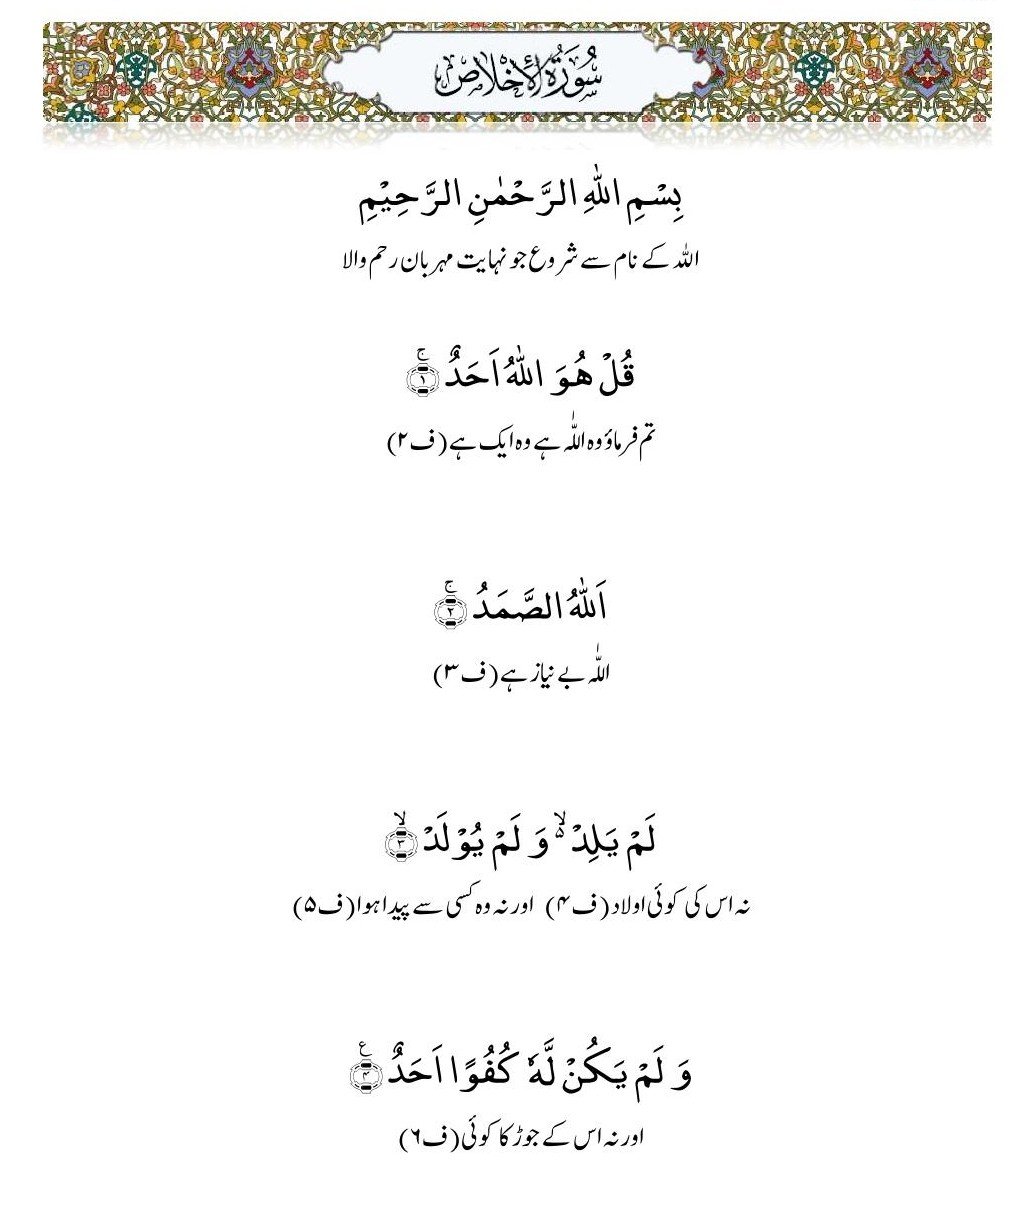 سُوْرَةُ الْإِخْلَاص
بِسْمِ اللّٰهِ الرَّحْمٰنِ الرَّحِیْمِ
اللہ کے نام سے شروع جو نہایت مہربان رحم والا
قُلْ هُوَ اللّٰهُ اَحَدٌۚ۝۱
تم فرماؤ وہ اللّٰہ ہے وہ ایک ہے (ف۲)
اَللّٰهُ الصَّمَدُۚ۝۲
اللّٰہ بے نیاز ہے (ف۳)
لَمْ یَلِدْ ﳔ وَ لَمْ یُوْلَدْۙ۝۳
نہ اس کی کوئی اولاد (ف۴) اور نہ وہ کسی سے پیدا ہوا (ف۵)
وَ لَمْ یَكُنْ لَّهٗ كُفُوًا اَحَدٌ۠۝۴
اور نہ اس کے جوڑ کا کوئی (ف۶)